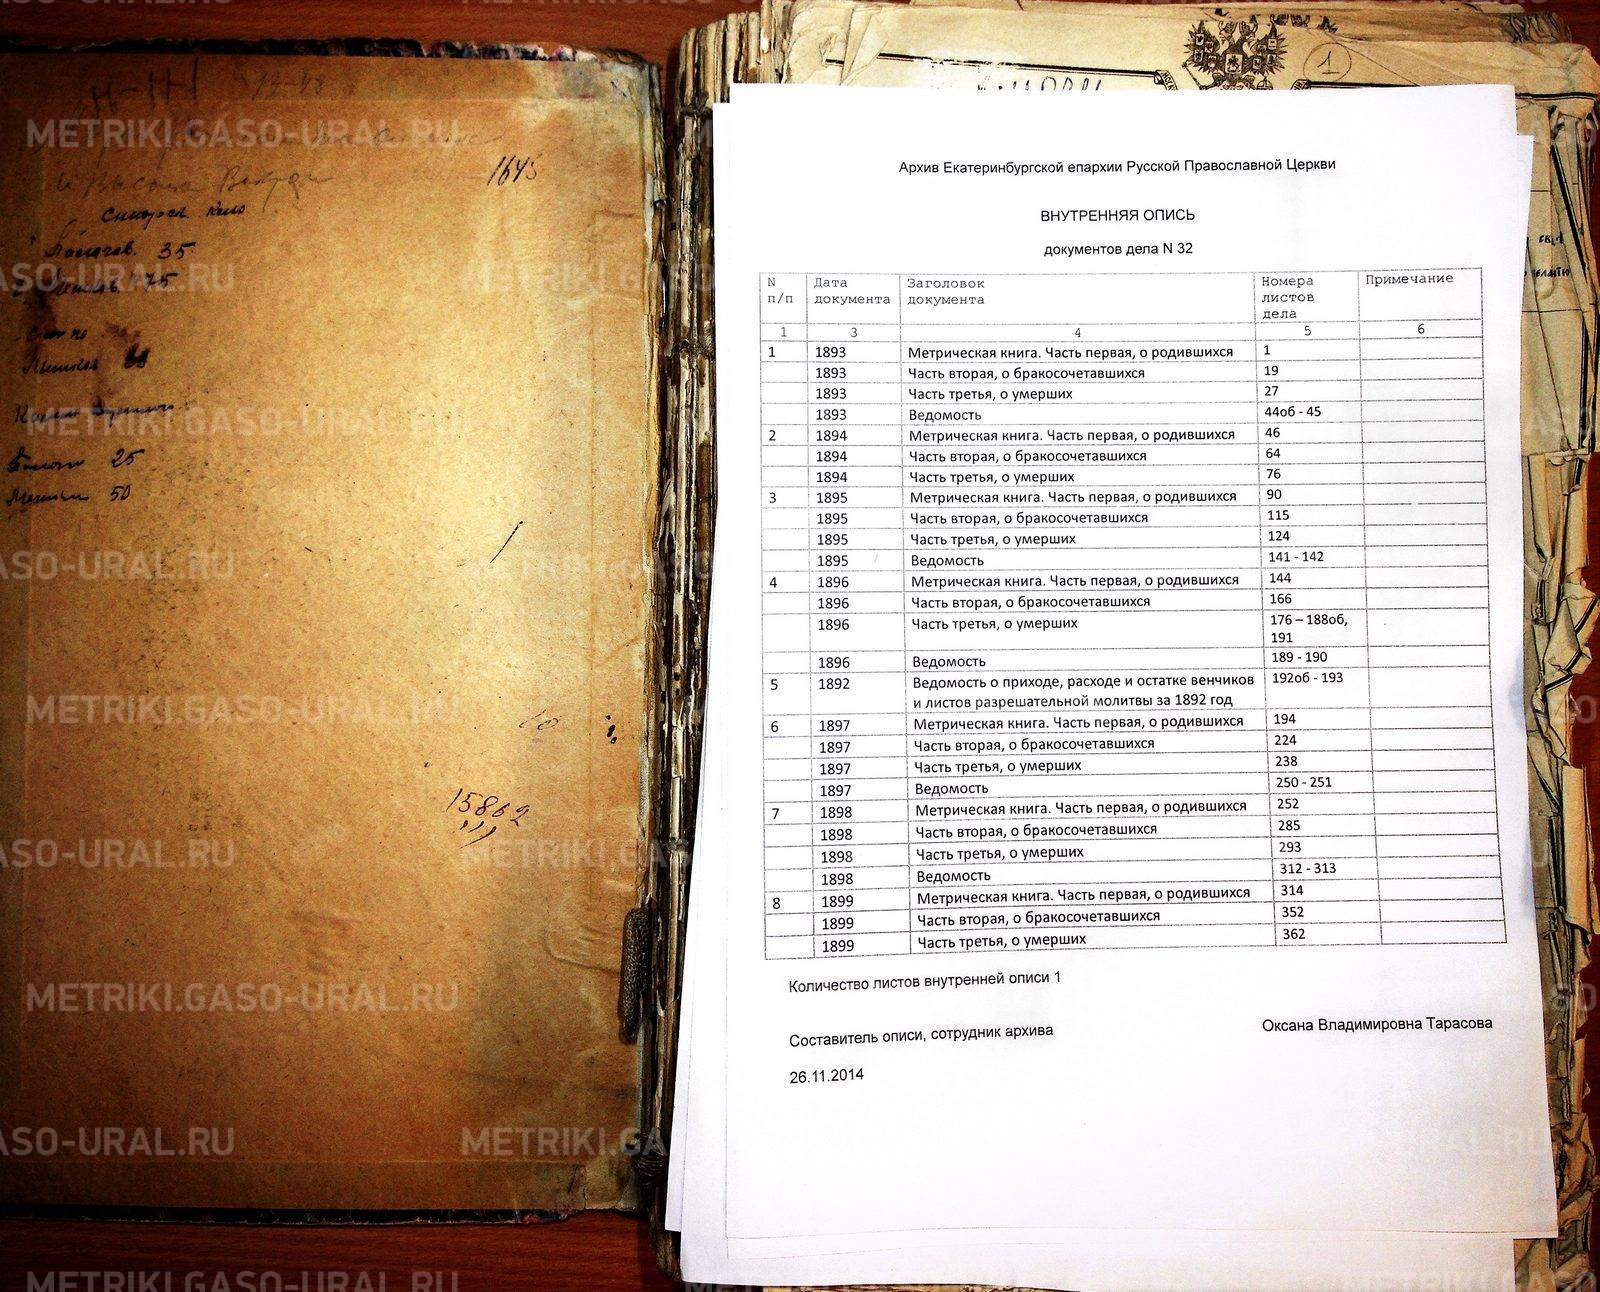 1645
35
75
25
50
15862
1
Архив Екатеринбургской епархии Русской Православной Церкви
ВНУТРЕННЯЯ ОПИСЬ
документов дела N 32
N п/п Дата документа Заголовок документа Номера листов дела Примечание
1 3 4 5 6
1 1893 Метрическая книга. Часть первая, о родившихся 1
1893 Часть вторая, о бракосочетавшихся 19
1893 Часть третья, о умерших 27
1893 Ведомость 44об - 45
2 1894 Метрическая книга. Часть первая, о родившихся 46
1894 Часть вторая, о бракосочетавшихся 64
1894 Часть третья, о умерших 76
3 1895 Метрическая книга. Часть первая, о родившихся 90
1895 Часть вторая, о бракосочетавшихся 115
1895 Часть третья, о умерших 124
1895 Ведомость 141 - 142
4 1896 Метрическая книга. Часть первая, о родившихся 144
1896 Часть вторая, о бракосочетавшихся 166
1896 Часть третья, о умерших 176 – 188об,
191
1896 Ведомость 189 - 190
5 1892 Ведомость о приходе, расходе и остатке венчиков 192об - 193
и листов разрешательной молитвы за 1892 год
6 1897 Метрическая книга. Часть первая, о родившихся 194
1897 Часть вторая, о бракосочетавшихся 224
1897 Часть третья, о умерших 238
1897 Ведомость 250 - 251
7 1898 Метрическая книга. Часть первая, о родившихся 252
1898 Часть вторая, о бракосочетавшихся 285
1898 Часть третья, о умерших 293
1898 Ведомость 312 - 313
8 1899 Метрическая книга. Часть первая, о родившихся 314
1899 Часть вторая, о бракосочетавшихся 352
1899 Часть третья, о умерших 362
Количество листов внутренней описи 1
Составитель описи, сотрудник архива Оксана Владимировна Тарасова
26.11.2014
METRIKI.GASO-URAL.RU